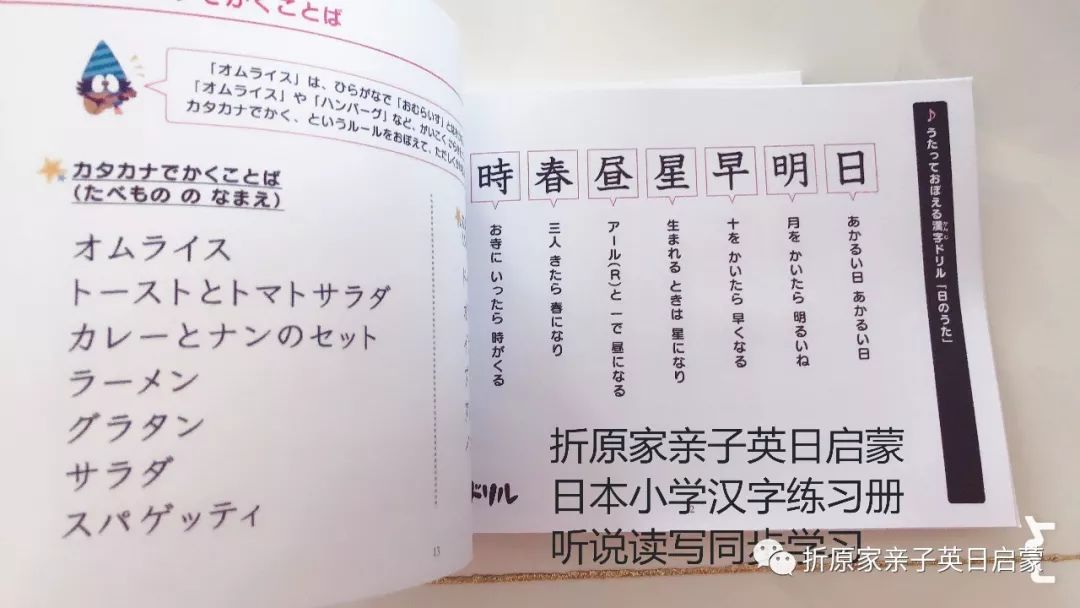 でかくことば
「オムライス」は、ひらがなで「おむらいす」と
「オムライス」や「ハンバーグ」など、がいこく
カタカナでかく、というルールをおぼえて、ただしく
カタカナでかくことば
(たべもの の なまえ)
オムライス
トーストとトマトサラダ
カレーとナンのセット
ラーメン
グラタン
サラダ
スパゲッティ
13
♪ うたっておぼえる漢字ドリル「日のうた」
かんじ
日
あかるい日 あかるい日
明
月を かいたら 明るいね
早
十を かいたら 早くなる
星
生まれる ときは 星になり
昼
アール(R)と 一で 昼になる
春
三人 きたら 春になり
時
お寺に いったら 時がくる
ドリル
2
折原家亲子英日启蒙
日本小学汉字练习册
听说读写同步学习
折原家亲子英日启蒙